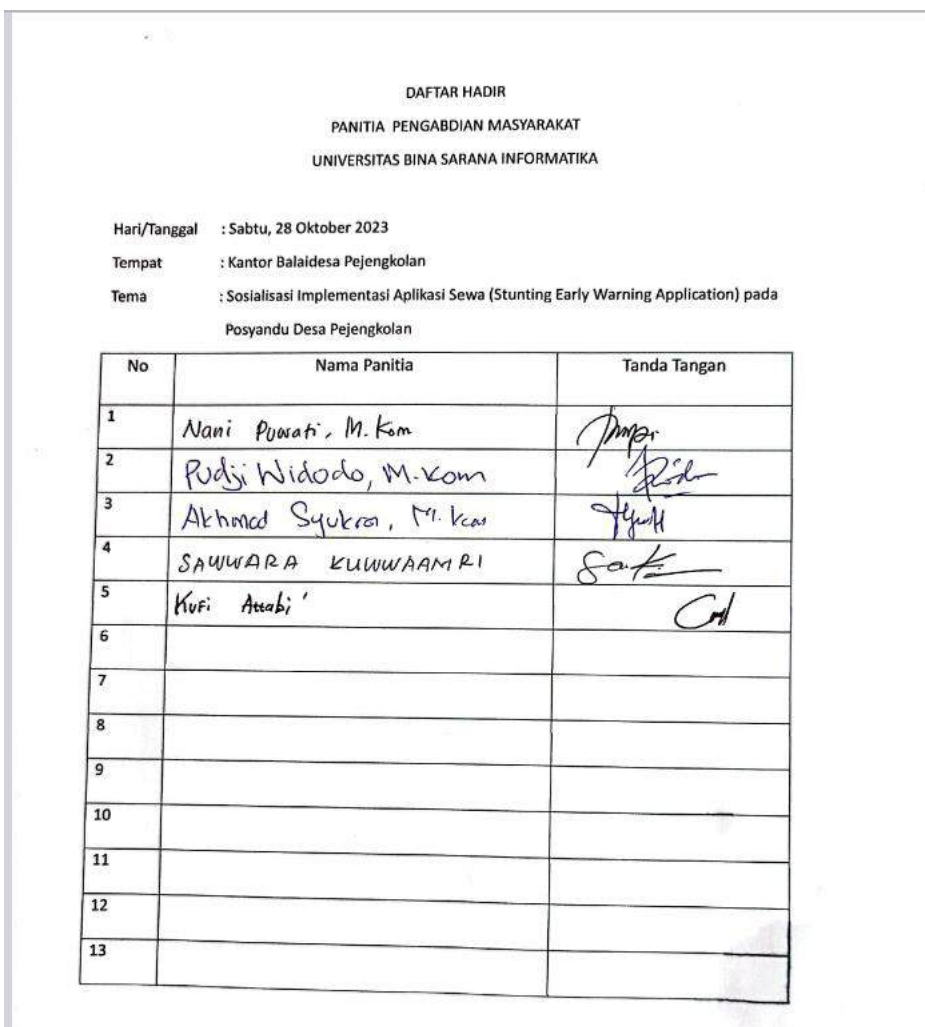 DAFTAR HADIR
PANITIA PENGABDIAN MASYARAKAT
UNIVERSITAS BINA SARANA INFORMATIKA
Hari/Tanggal : Sabtu, 28 Oktober 2023
Tempat : Kantor Balaidesa Pejengkolan
Tema : Sosialisasi Implementasi Aplikasi Sewa (Stunting Early Warning Application) pada
Posyandu Desa Pejengkolan
No Nama Panitia Tanda Tangan
1 Nani Purwati, M.Kom
2 Pudji Widodo, M.Kom
3 Akhmad Syukron, M.Kom
4 SAWWARA KUWWAAMRI
5 Kufi Attabi'
6
7
8
9
10
11
12
13